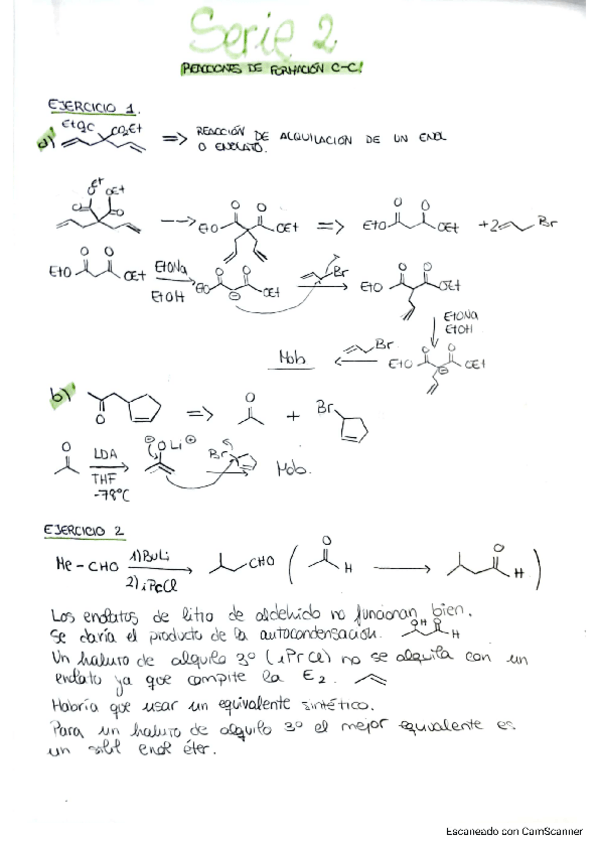 Serie 2
REACCIONES DE FORMACIÓN C-C!
EJERCICIO 1.
a) EtO₂C CO₂Et => REACCIÓN DE ALQUILACIÓN DE UN ENOL
O ENOLATO.
OEt OEt O O
O EtO OEt => EtO O O OEt + 2 Br
EtO O O OEt EtONa EtOH EtO O O OEt Br EtO O O OEt
EtONa
EtOH
Mob Br EtO O O OEt
b) O => O + Br
O LDA OLi Br Mob.
THF
-78ºC
EJERCICIO 2
Me-CHO 1) BuLi CHO ( O H O H )
2) iPrCl
Los enolatos de litio de aldehído no funcionan bien.
Se daría el producto de la autocondensación. OH O H
Un haluro de alquilo 3º (iPrCl) no se alquila con un
enolato ya que compite la E2.
Habría que usar un equivalente sintético.
Para un haluro de alquilo 3º el mejor equivalente es
un silil enol éter.
Escaneado con CamScanner